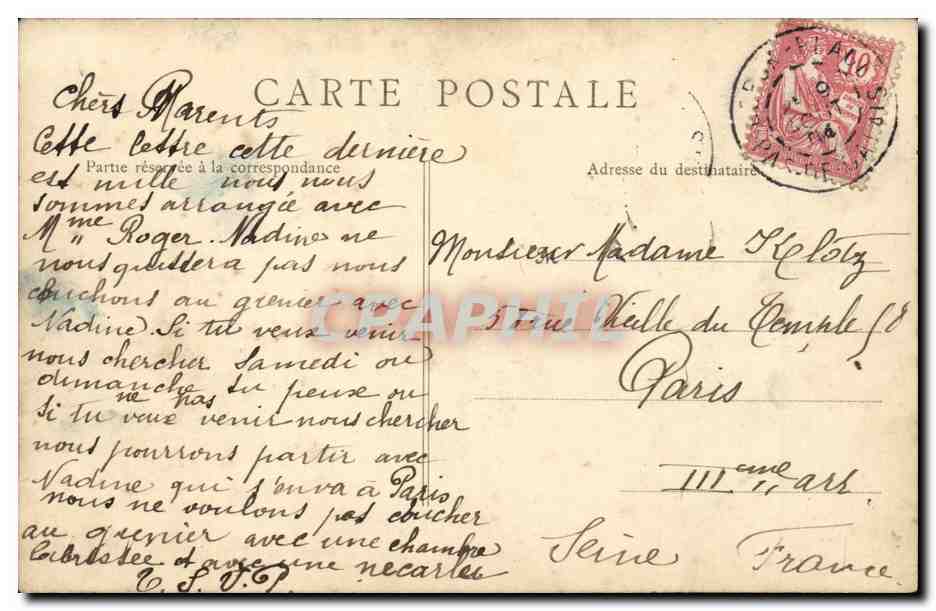 CARTE POSTALE
Partie réservée à la correspondance
Adresse du destinataire
Chèrs Parents
Cette lettre cette dernière
est nulle nous nous
sommes arrangée avec
Mme Roger. Nadine ne
nous quittera pas nous
couchons au grenier avec
Nadine. Si tu veux venir
nous chercher samedi ou
dimanche tu peux ou
si tu ne veux pas venir nous chercher
nous pourrons partir avec
Nadine qui s'enva à Paris
nous ne voulons pas coucher
au grenier avec une chambre
et avec une
T. S. V. P.
Monsieur Madame Klotz
rue Vieille du Temple 58
Paris
IIIeme arr.
Seine France
CRAPHIL